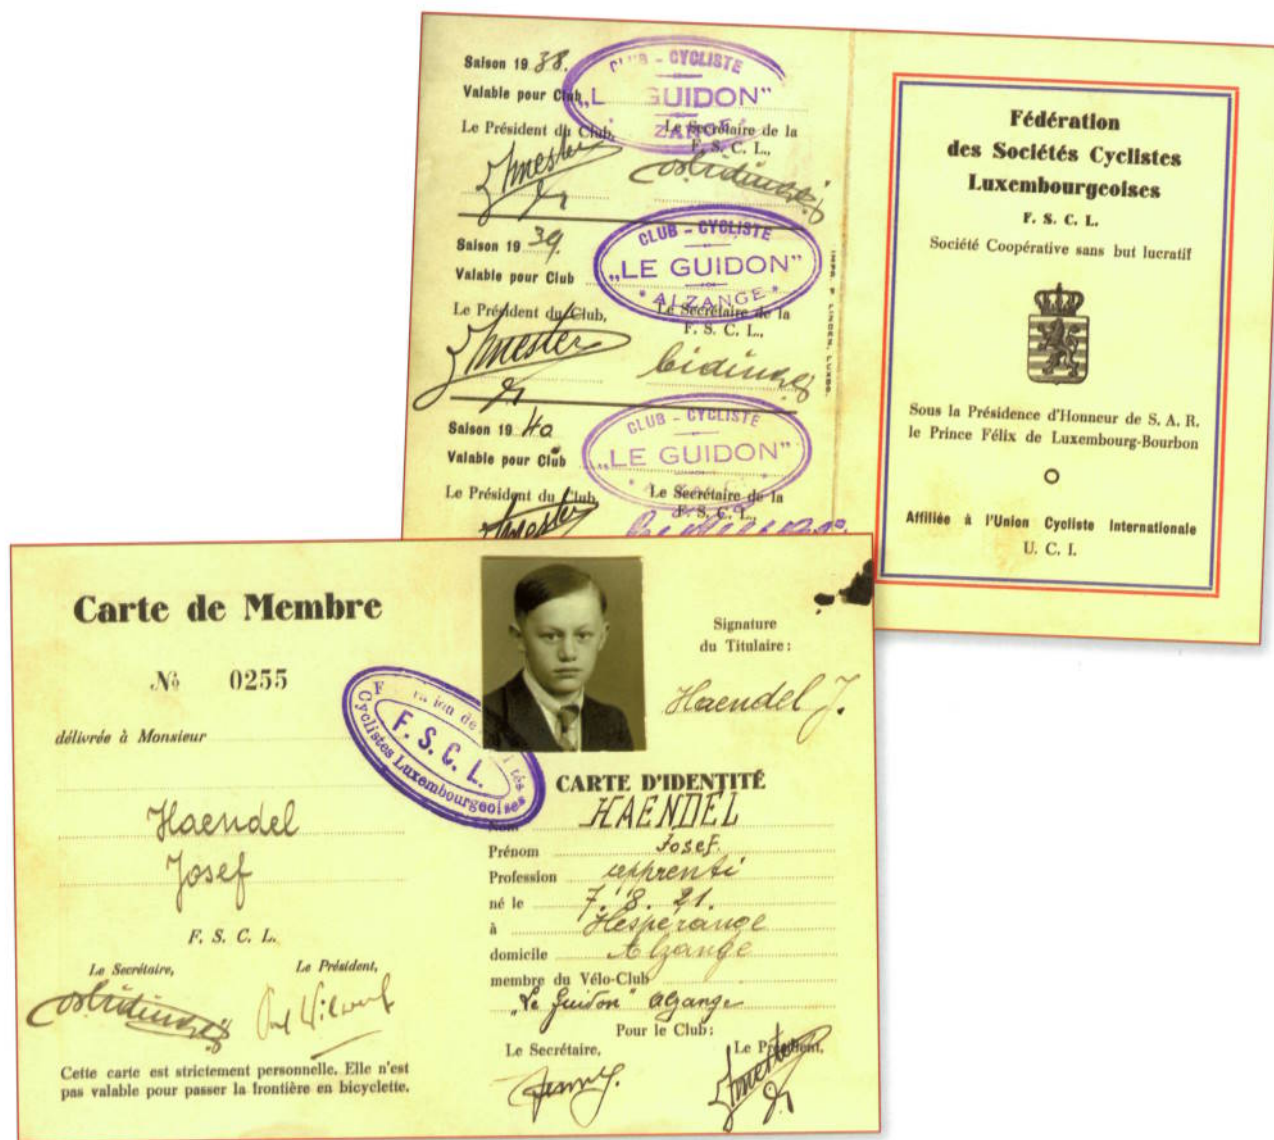 Saison 19 38.
CLUB - CYCLISTE
Valable pour Club
„LE GUIDON"
ALZANGE
Le Président du Club,
Le Secrétaire de la
F. S. C. L.,
Saison 19 39.
CLUB - CYCLISTE
Valable pour Club
„LE GUIDON"
* ALZANGE *
Le Président du Club,
Le Secrétaire de la
F. S. C. L.,
IMPR. P. LINDEN, LUXBG.
Saison 19 40
CLUB - CYCLISTE
Valable pour Club
„LE GUIDON"
Le Président du Club,
Le Secrétaire de la
F. S. C. L.,
Fédération
des Sociétés Cyclistes
Luxembourgeoises
F. S. C. L.
Société Coopérative sans but lucratif
Sous la Présidence d'Honneur de S. A. R.
le Prince Félix de Luxembourg-Bourbon
Affiliée à l'Union Cycliste Internationale
U. C. I.
Carte de Membre
№ 0255
délivrée à Monsieur
Haendel
Josef
F. S. C. L.
Le Secrétaire,
Le Président,
Cette carte est strictement personnelle. Elle n'est
pas valable pour passer la frontière en bicyclette.
F. S. C. L.
Cyclistes Luxembourgeoises
Signature
du Titulaire:
Haendel J.
CARTE D'IDENTITÉ
Nom HAENDEL
Prénom Josef.
Profession apprenti
né le 7. 8. 21.
à Hesperange
domicile Alzange
membre du Vélo-Club
„Le Guidon" Alzange
Pour le Club:
Le Secrétaire,
Le Président,